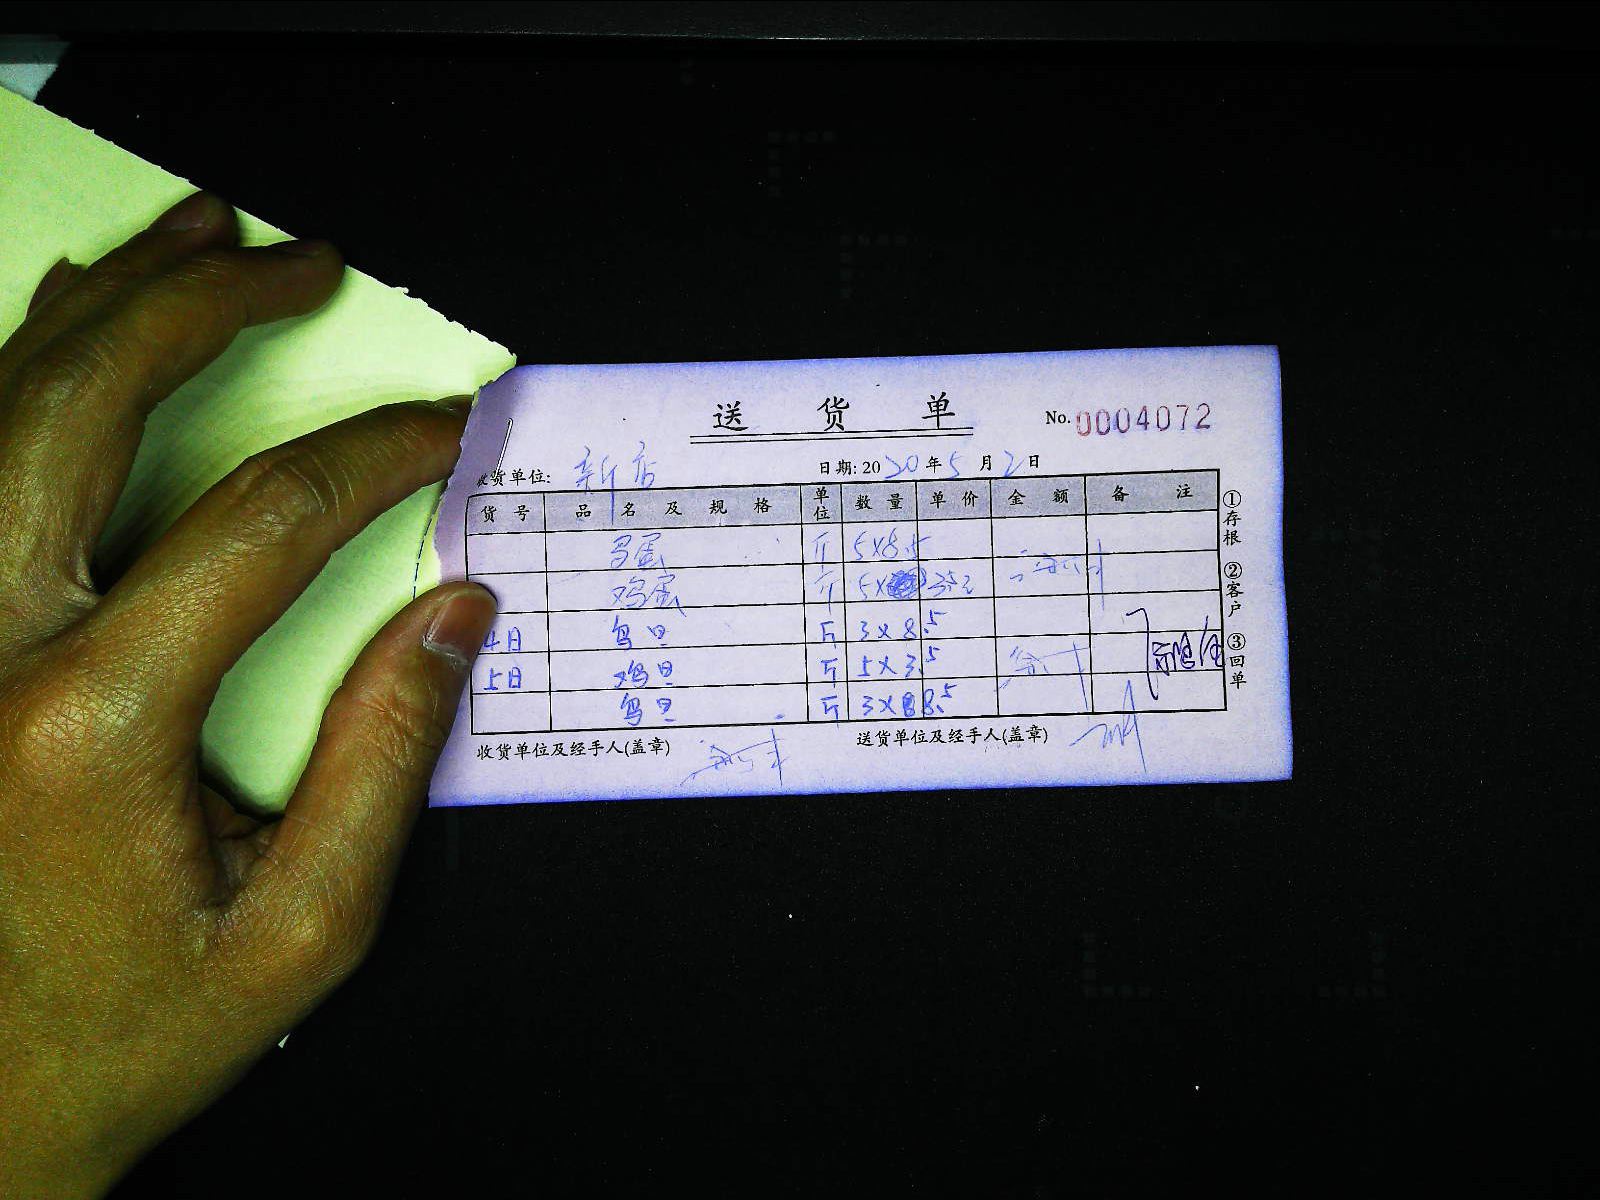 送 货 单
No. 0004072
收货单位: 新店 日期: 2020年5月2日
货号 品名及规格 单位 数量 单价 金额 备注
鸟蛋 斤 5×8.5
鸡蛋 斤 5× 3.52
4日 鸟旦 斤 3×8.5
5日 鸡旦 斤 5×3.5
鸟旦 斤 3×8 8.5
收货单位及经手人(盖章) 送货单位及经手人(盖章)
①存根
②客户
③回单